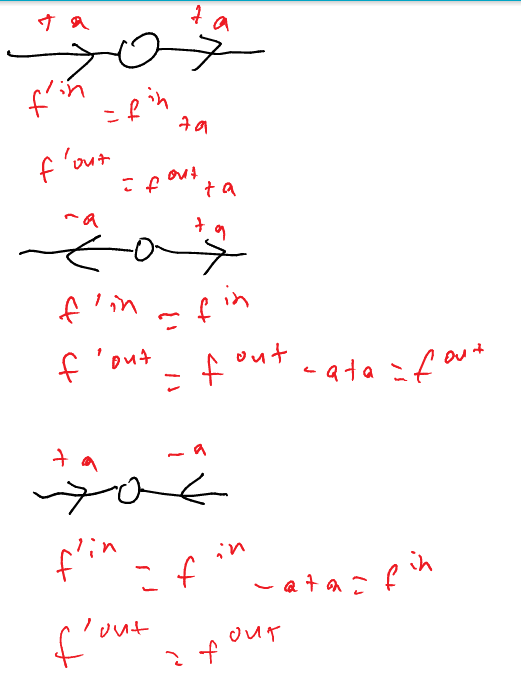 + a + a
f'in = f in + a
f'out = f out + a
- a + a
f'in = f in
f'out = f out - a + a = f out
+ a - a
f'in = f in - a + a = f in
f'out = f out